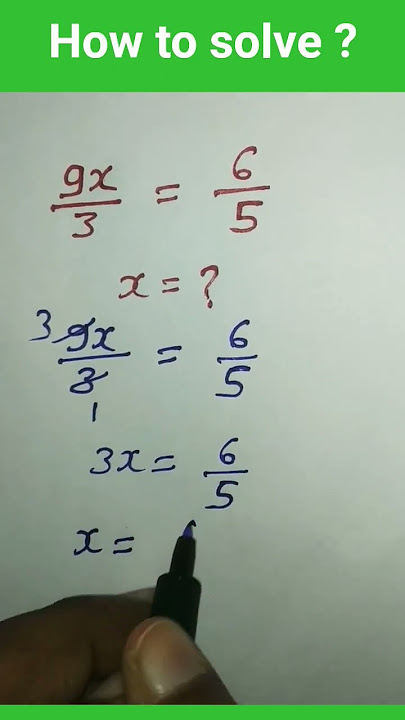 How to solve ?
9x/3 = 6/5
x = ?
3 9x/3 1 = 6/5
3x = 6/5
x =